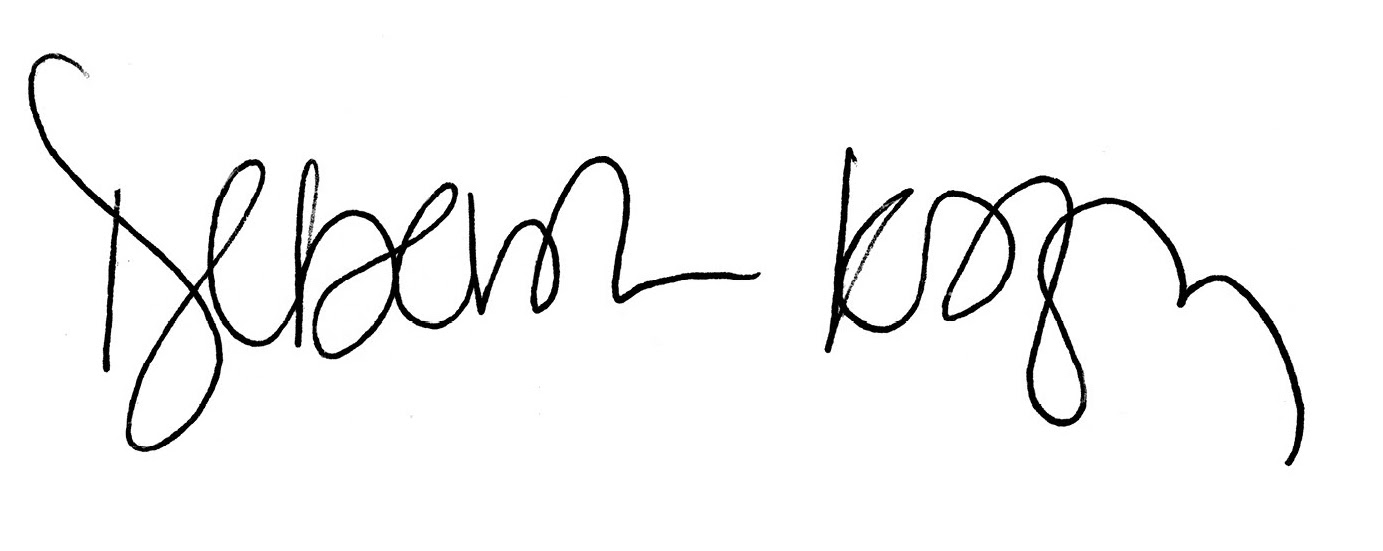 Deborah Kogan